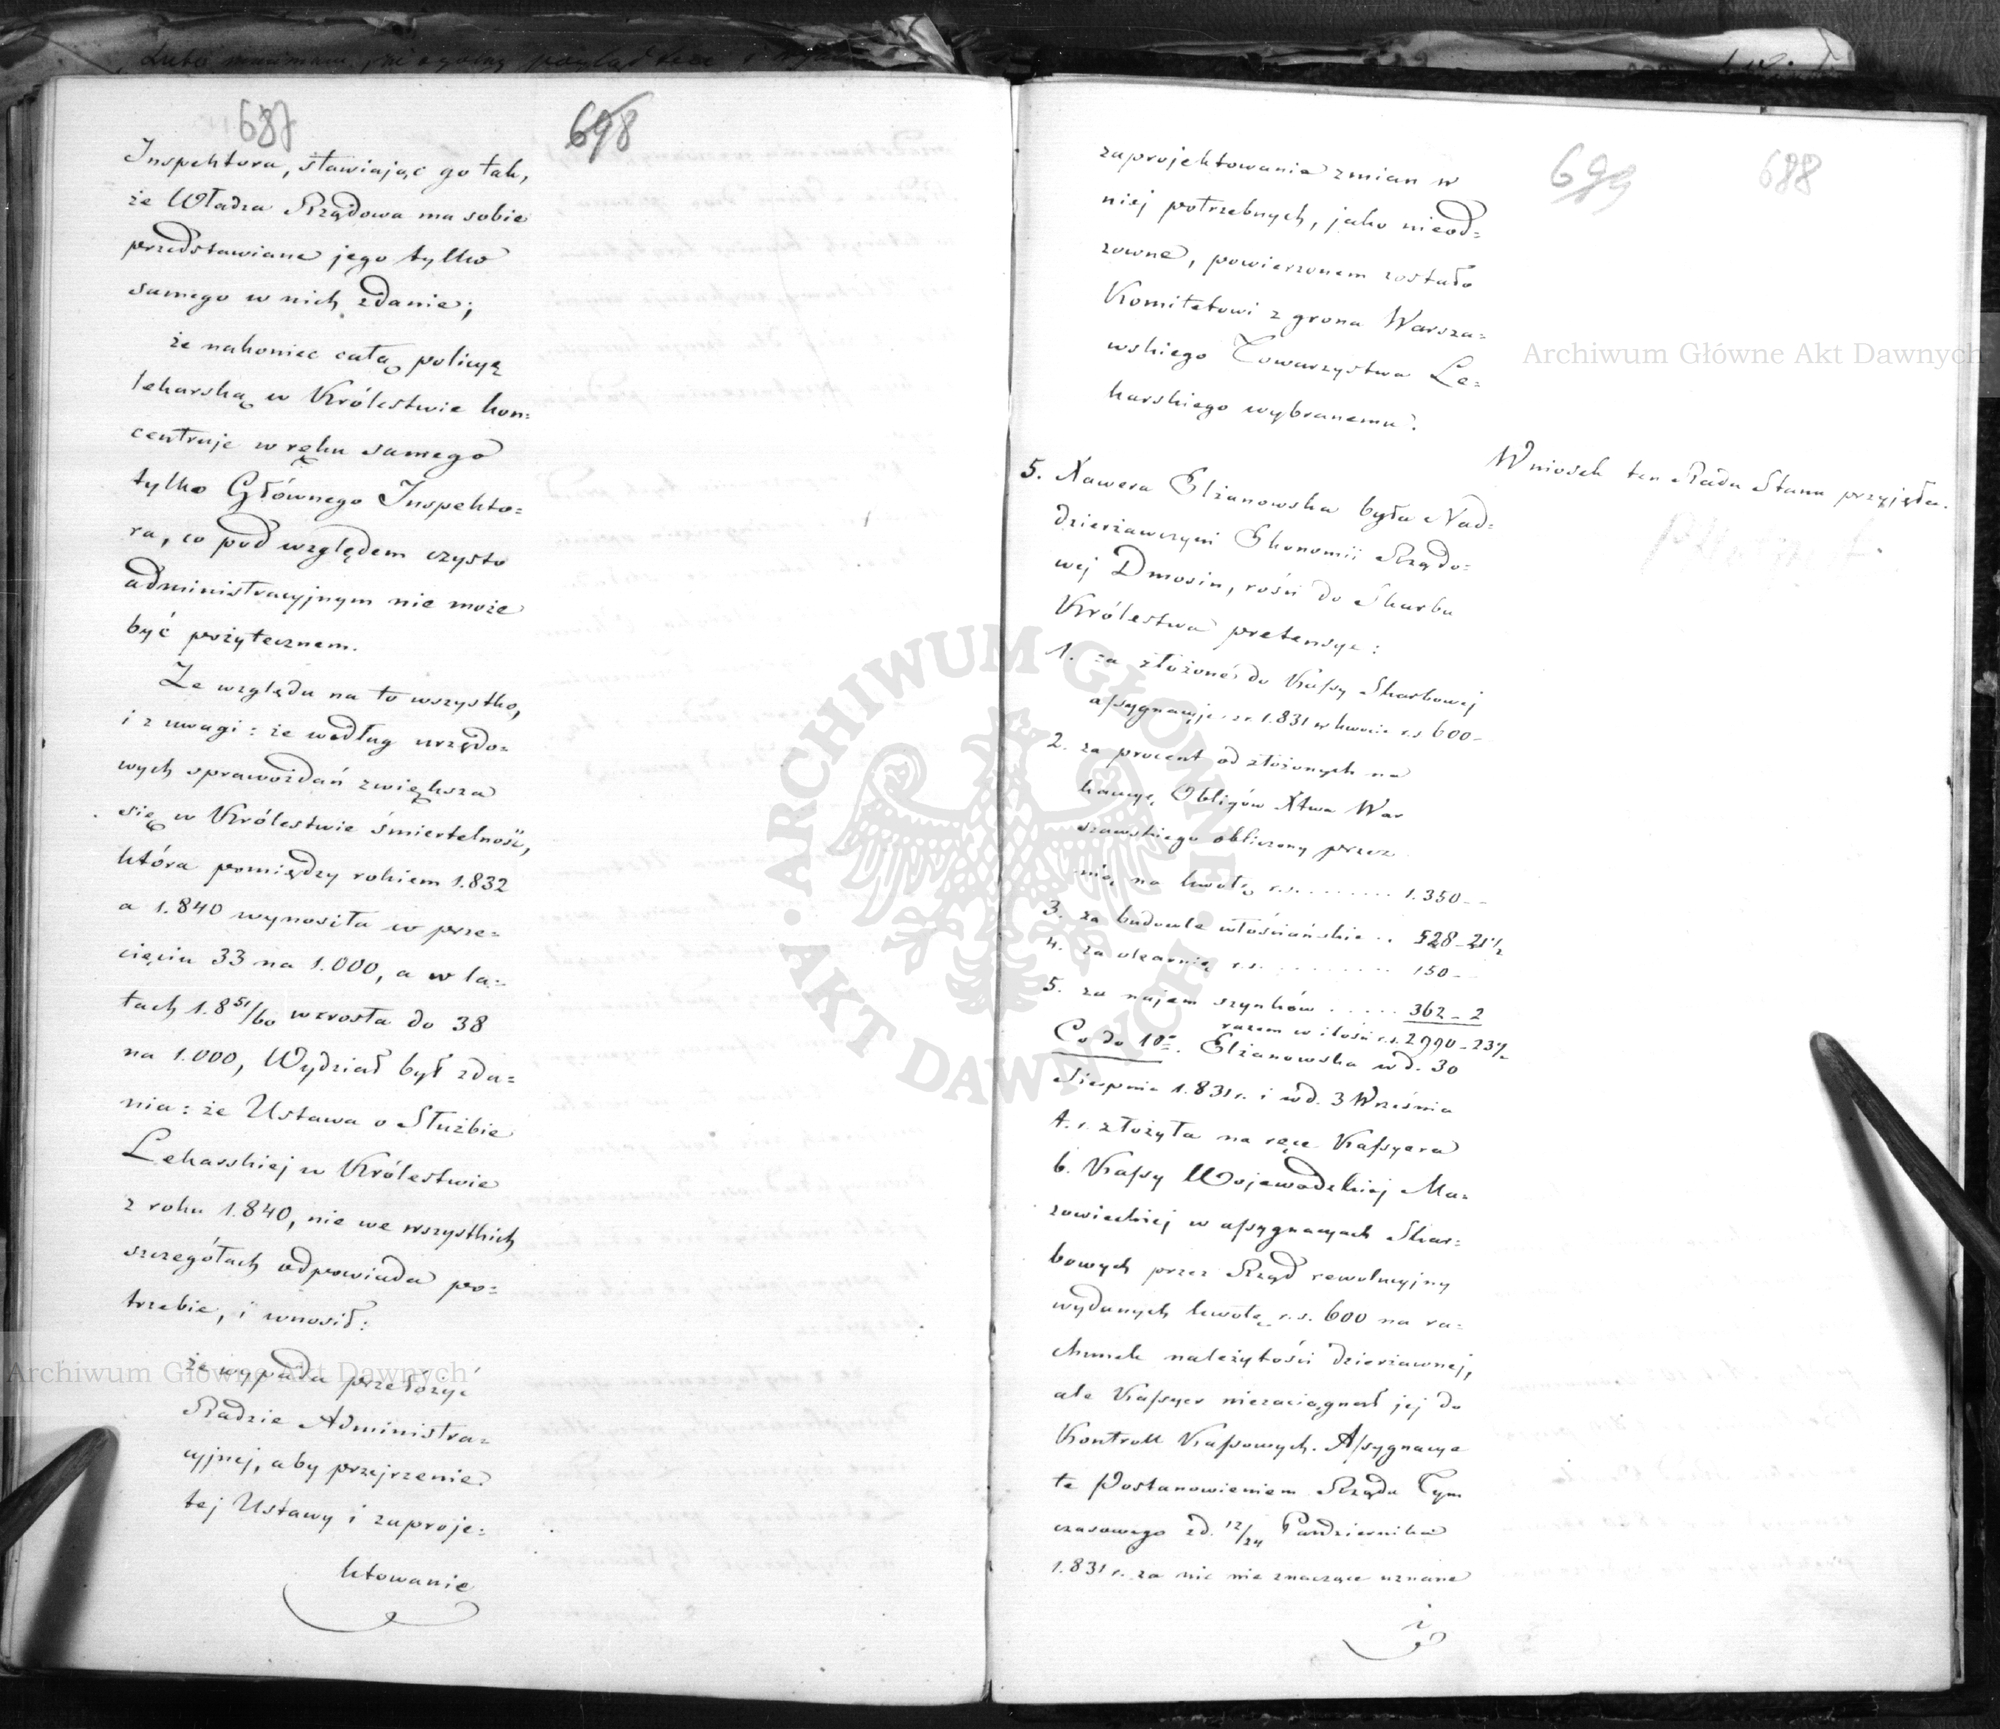 687
698
Inspektora, stawiając go tak,
że Władza Rządowa ma sobie
przedstawiane jego tylko
samego w nich zdanie;
że nakoniec całą policyą
lekarską w Królestwie kon=
centruje w ręku samego
tylko Głównego Inspekto=
ra, co pod względem czysto
administracyjnym nie może
być pożytecznem.
Ze względu na to wszystko,
i z uwagi: że według urzędo=
wych sprawozdań zwiększa
się w Królestwie śmiertelność,
która pomiędzy rokiem 1.832
a 1.840 wynosiła w prze=
cięciu 33 na 1.000, a w la=
tach 1.8 51/60 wzrosła do 38
na 1.000, Wydział był zda=
nia: że Ustawa o Służbie
Lekarskiej w Królestwie
z roku 1.840, nie we wszystkich
szczegółach odpowiada po=
trzebie, i wnosił:
że wypada przełożyć
Radzie Administra=
cyjnej, aby przejrzenie
tej Ustawy i zaproje=
ktowanie
699
688
zaprojektowania zmian w
niej potrzebnych, jako nieod=
zowne, powierzonem zostało
Komitetowi z grona Warsza=
wskiego Towarzystwa Le=
karskiego wybranemu.
Wniosek ten Rada Stanu przyjęła.
5. Xawera Elżanowska była Nad=
dzierżawczyni Ekonomii Rządo=
wej Dmosin, rości do Skarbu
Królestwa pretensye:
1. za złożone do Kassy Skarbowej
assygnacye z r. 1.831 w kwocie r.s 600 -
2. za procent od złożonych na
kaucyę Obligów Xtwa War
szawskiego obliczony przez
nią na kwotę r.s. . . . . . . . . 1.350 - -
3. za budowle włościańskie . . 528 - 21½
4. za olearnię r.s. . . . . . . . . . 150 -
5. za najem szynków . . . . . 362 - 2
razem w ilości r.s. 2990 - 23½
Co do 1go. Elżanowska w d. 30
Sierpnia 1.831 r. i w d. 3 Września
t. r. złożyła na ręce Kassyera
b. Kassy Wojewódzkiej Ma=
zowieckiej w assygnacyach Skar=
bowych przez Rząd rewolucyjny
wydanych kwotę r.s. 600 na ra=
chunek należytości dzierżawnej,
ale Kassyer niezaciągnął jej do
Kontroll Kassowych. Assygnacye
te Postanowieniem Rządu Tym
czasowego z d. 12/24 Października
1.831 r. za nic nie znaczące uznane
i
Archiwum Główne Akt Dawnych
Archiwum Główne Akt Dawnych
ARCHIWUM GŁÓWNE
AKT DAWNYCH